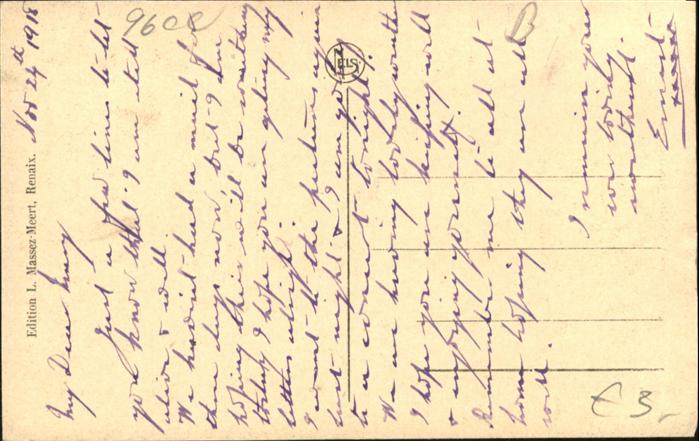 Nov 24th 1918
My Dear Mary
Just a few lines to let
you know that I am still
alive & well.
We havint had a mail for
three days now, but I am
hoping there will be something
today. I hope you are getting my
letters alright.
I went to the pictures again
last night & I am going
to a concert tonight.
We are having lovely weather
I hope you are keeping well
& enjoying yourself.
Remember me to all at
home hoping they are all
well.
I remain your
ever loving
Ernest
xxxxx
Edition L. Massez-Meert, Renaix.
ELS
96
B
€ 3,-